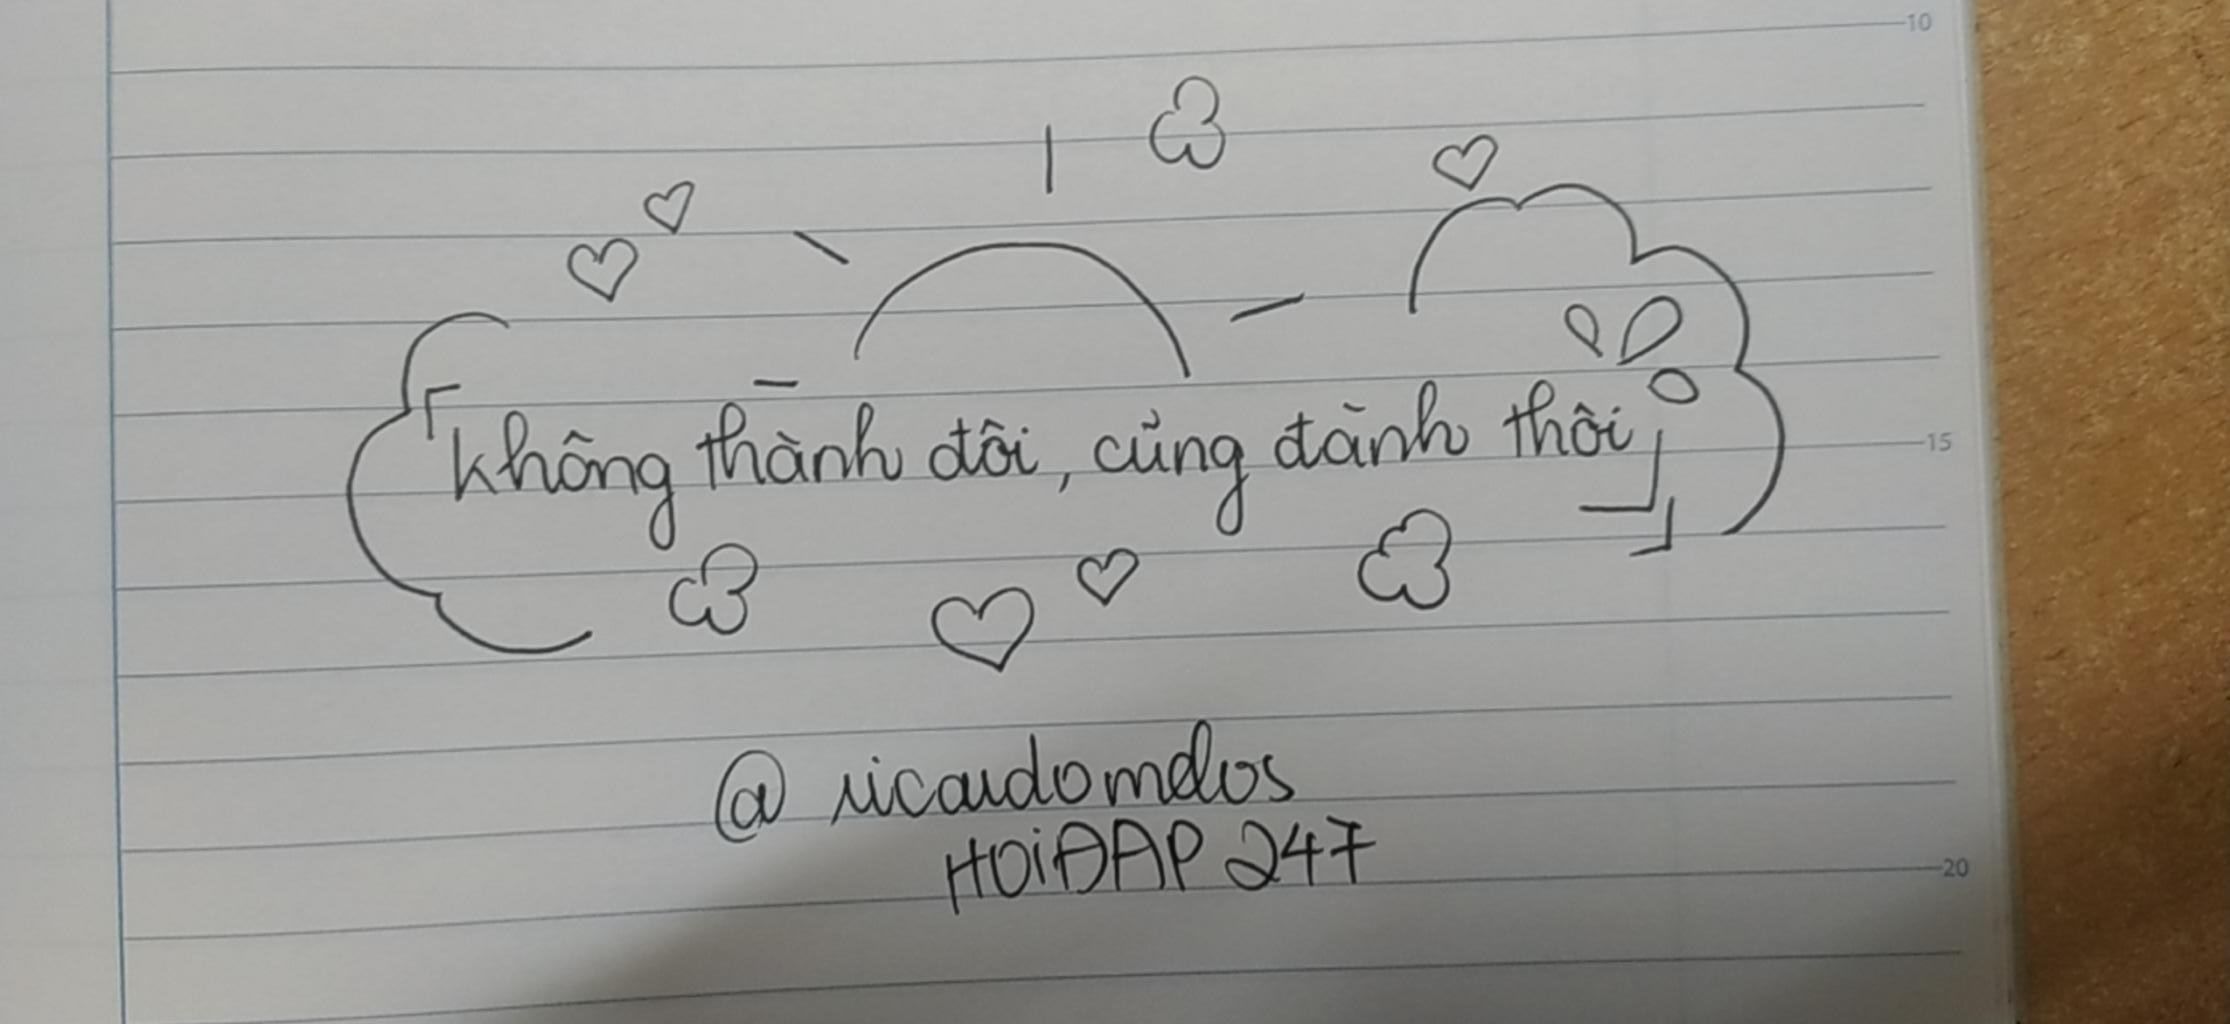 10
「Không thành đôi, cũng đành thôi」
15
@ricardomelos
HOIĐAP 247
20